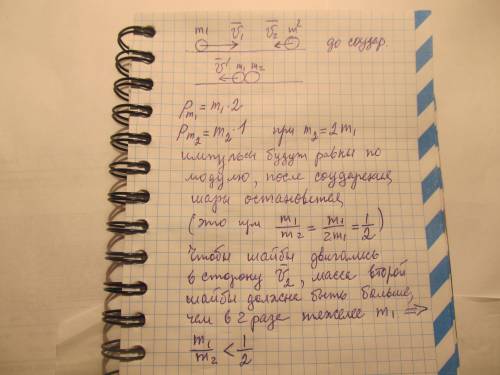 m1 v̄1 v̄2 m2 до соудар.
v̄' m1 m2
Pm1 = m1·2
Pm2 = m2·1 при m2 = 2m1
импульсы будут равны по
модулю, после соударения,
шары остановятся,
(это при m1/m2 = m1/2m1 = 1/2)
Чтобы шайбы двигались
в сторону v̄2, масса второй
шайбы должна быть больше,
чем в 2 раза тяжелее m1 =>
m1/m2 < 1/2